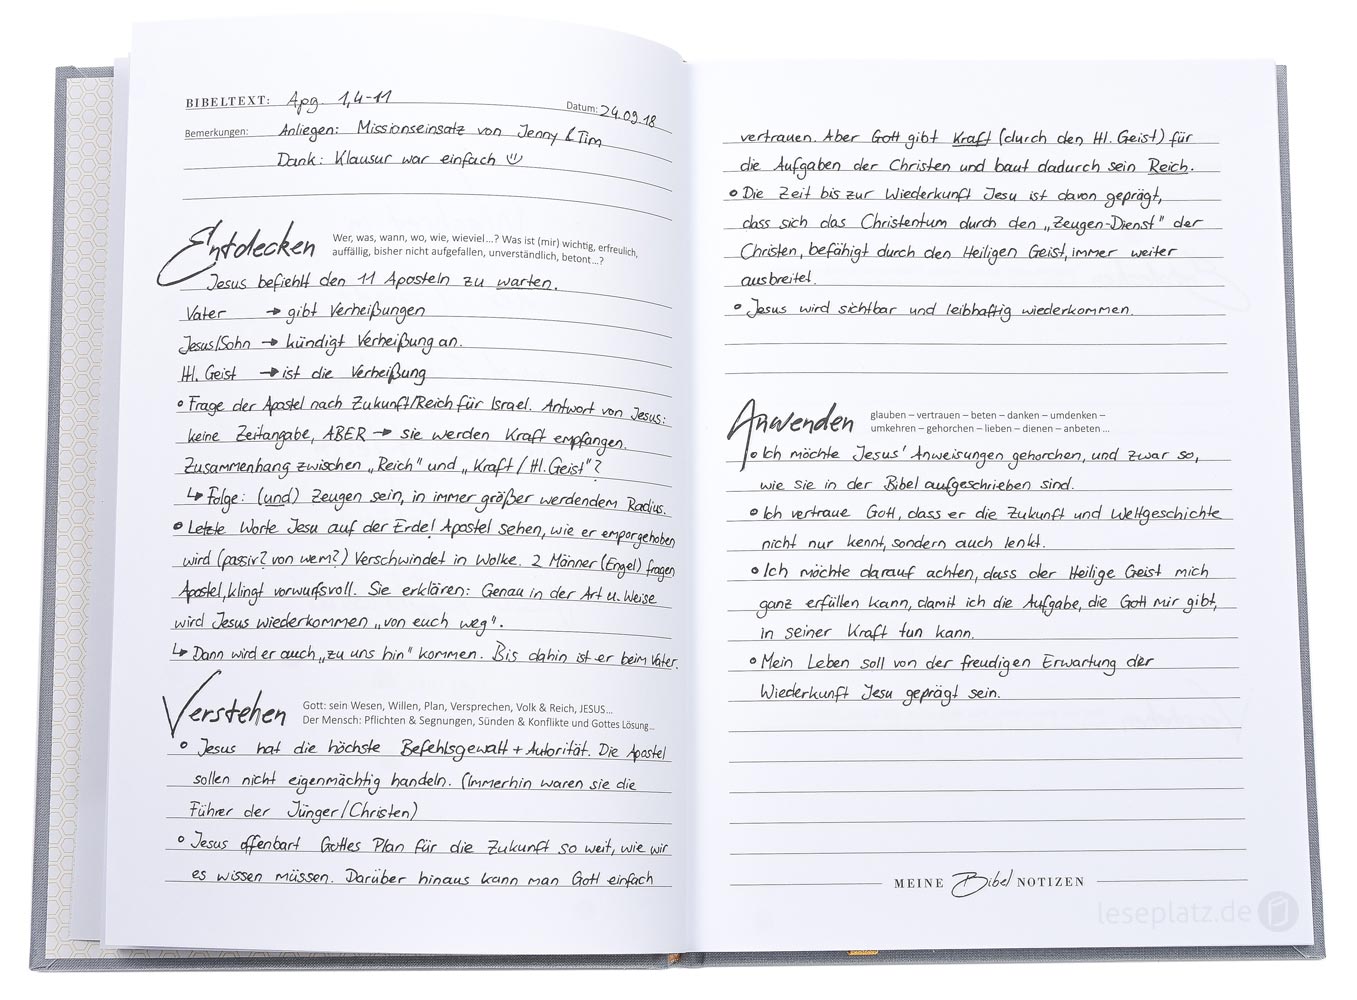 BIBELTEXT: Apg. 1,4-11 Datum: 24.09.18
Bemerkungen: Anliegen: Missionseinsatz von Jenny & Tim
Dank: Klausur war einfach
Entdecken
Wer, was, wann, wo, wie, wieviel...? Was ist (mir) wichtig, erfreulich,
auffällig, bisher nicht aufgefallen, unverständlich, betont...?
Jesus befiehlt den 11 Aposteln zu warten.
Vater → gibt Verheißungen
Jesus/Sohn → kündigt Verheißung an.
Hl. Geist → ist die Verheißung
• Frage der Apostel nach Zukunft/Reich für Israel. Antwort von Jesus:
keine Zeitangabe, ABER → sie werden Kraft empfangen.
Zusammenhang zwischen „Reich" und „Kraft / Hl. Geist"?
↳ Folge: (und) Zeugen sein, in immer größer werdendem Radius.
• Letzte Worte Jesu auf der Erde! Apostel sehen, wie er emporgehoben
wird (passiv? von wem?) Verschwindet in Wolke. 2 Männer (Engel) fragen
Apostel, klingt vorwurfsvoll. Sie erklären: Genau in der Art u. Weise
wird Jesus wiederkommen „von euch weg".
↳ Dann wird er auch „zu uns hin" kommen. Bis dahin ist er beim Vater.
Verstehen
Gott: sein Wesen, Willen, Plan, Versprechen, Volk & Reich, JESUS...
Der Mensch: Pflichten & Segnungen, Sünden & Konflikte und Gottes Lösung...
• Jesus hat die höchste Befehlsgewalt + Autorität. Die Apostel
sollen nicht eigenmächtig handeln. (Immerhin waren sie die
Führer der Jünger/Christen)
• Jesus offenbart Gottes Plan für die Zukunft so weit, wie wir
es wissen müssen. Darüber hinaus kann man Gott einfach
vertrauen. Aber Gott gibt Kraft (durch den Hl. Geist) für
die Aufgaben der Christen und baut dadurch sein Reich.
• Die Zeit bis zur Wiederkunft Jesu ist davon geprägt,
dass sich das Christentum durch den „Zeugen-Dienst" der
Christen, befähigt durch den Heiligen Geist, immer weiter
ausbreitet.
• Jesus wird sichtbar und leibhaftig wiederkommen.
Anwenden
glauben – vertrauen – beten – danken – umdenken –
umkehren – gehorchen – lieben – dienen – anbeten ...
• Ich möchte Jesus' Anweisungen gehorchen, und zwar so,
wie sie in der Bibel aufgeschrieben sind.
• Ich vertraue Gott, dass er die Zukunft und Weltgeschichte
nicht nur kennt, sondern auch lenkt.
• Ich möchte darauf achten, dass der Heilige Geist mich
ganz erfüllen kann, damit ich die Aufgabe, die Gott mir gibt,
in seiner Kraft tun kann.
• Mein Leben soll von der freudigen Erwartung der
Wiederkunft Jesu geprägt sein.
MEINE Bibel NOTIZEN
leseplatz.de